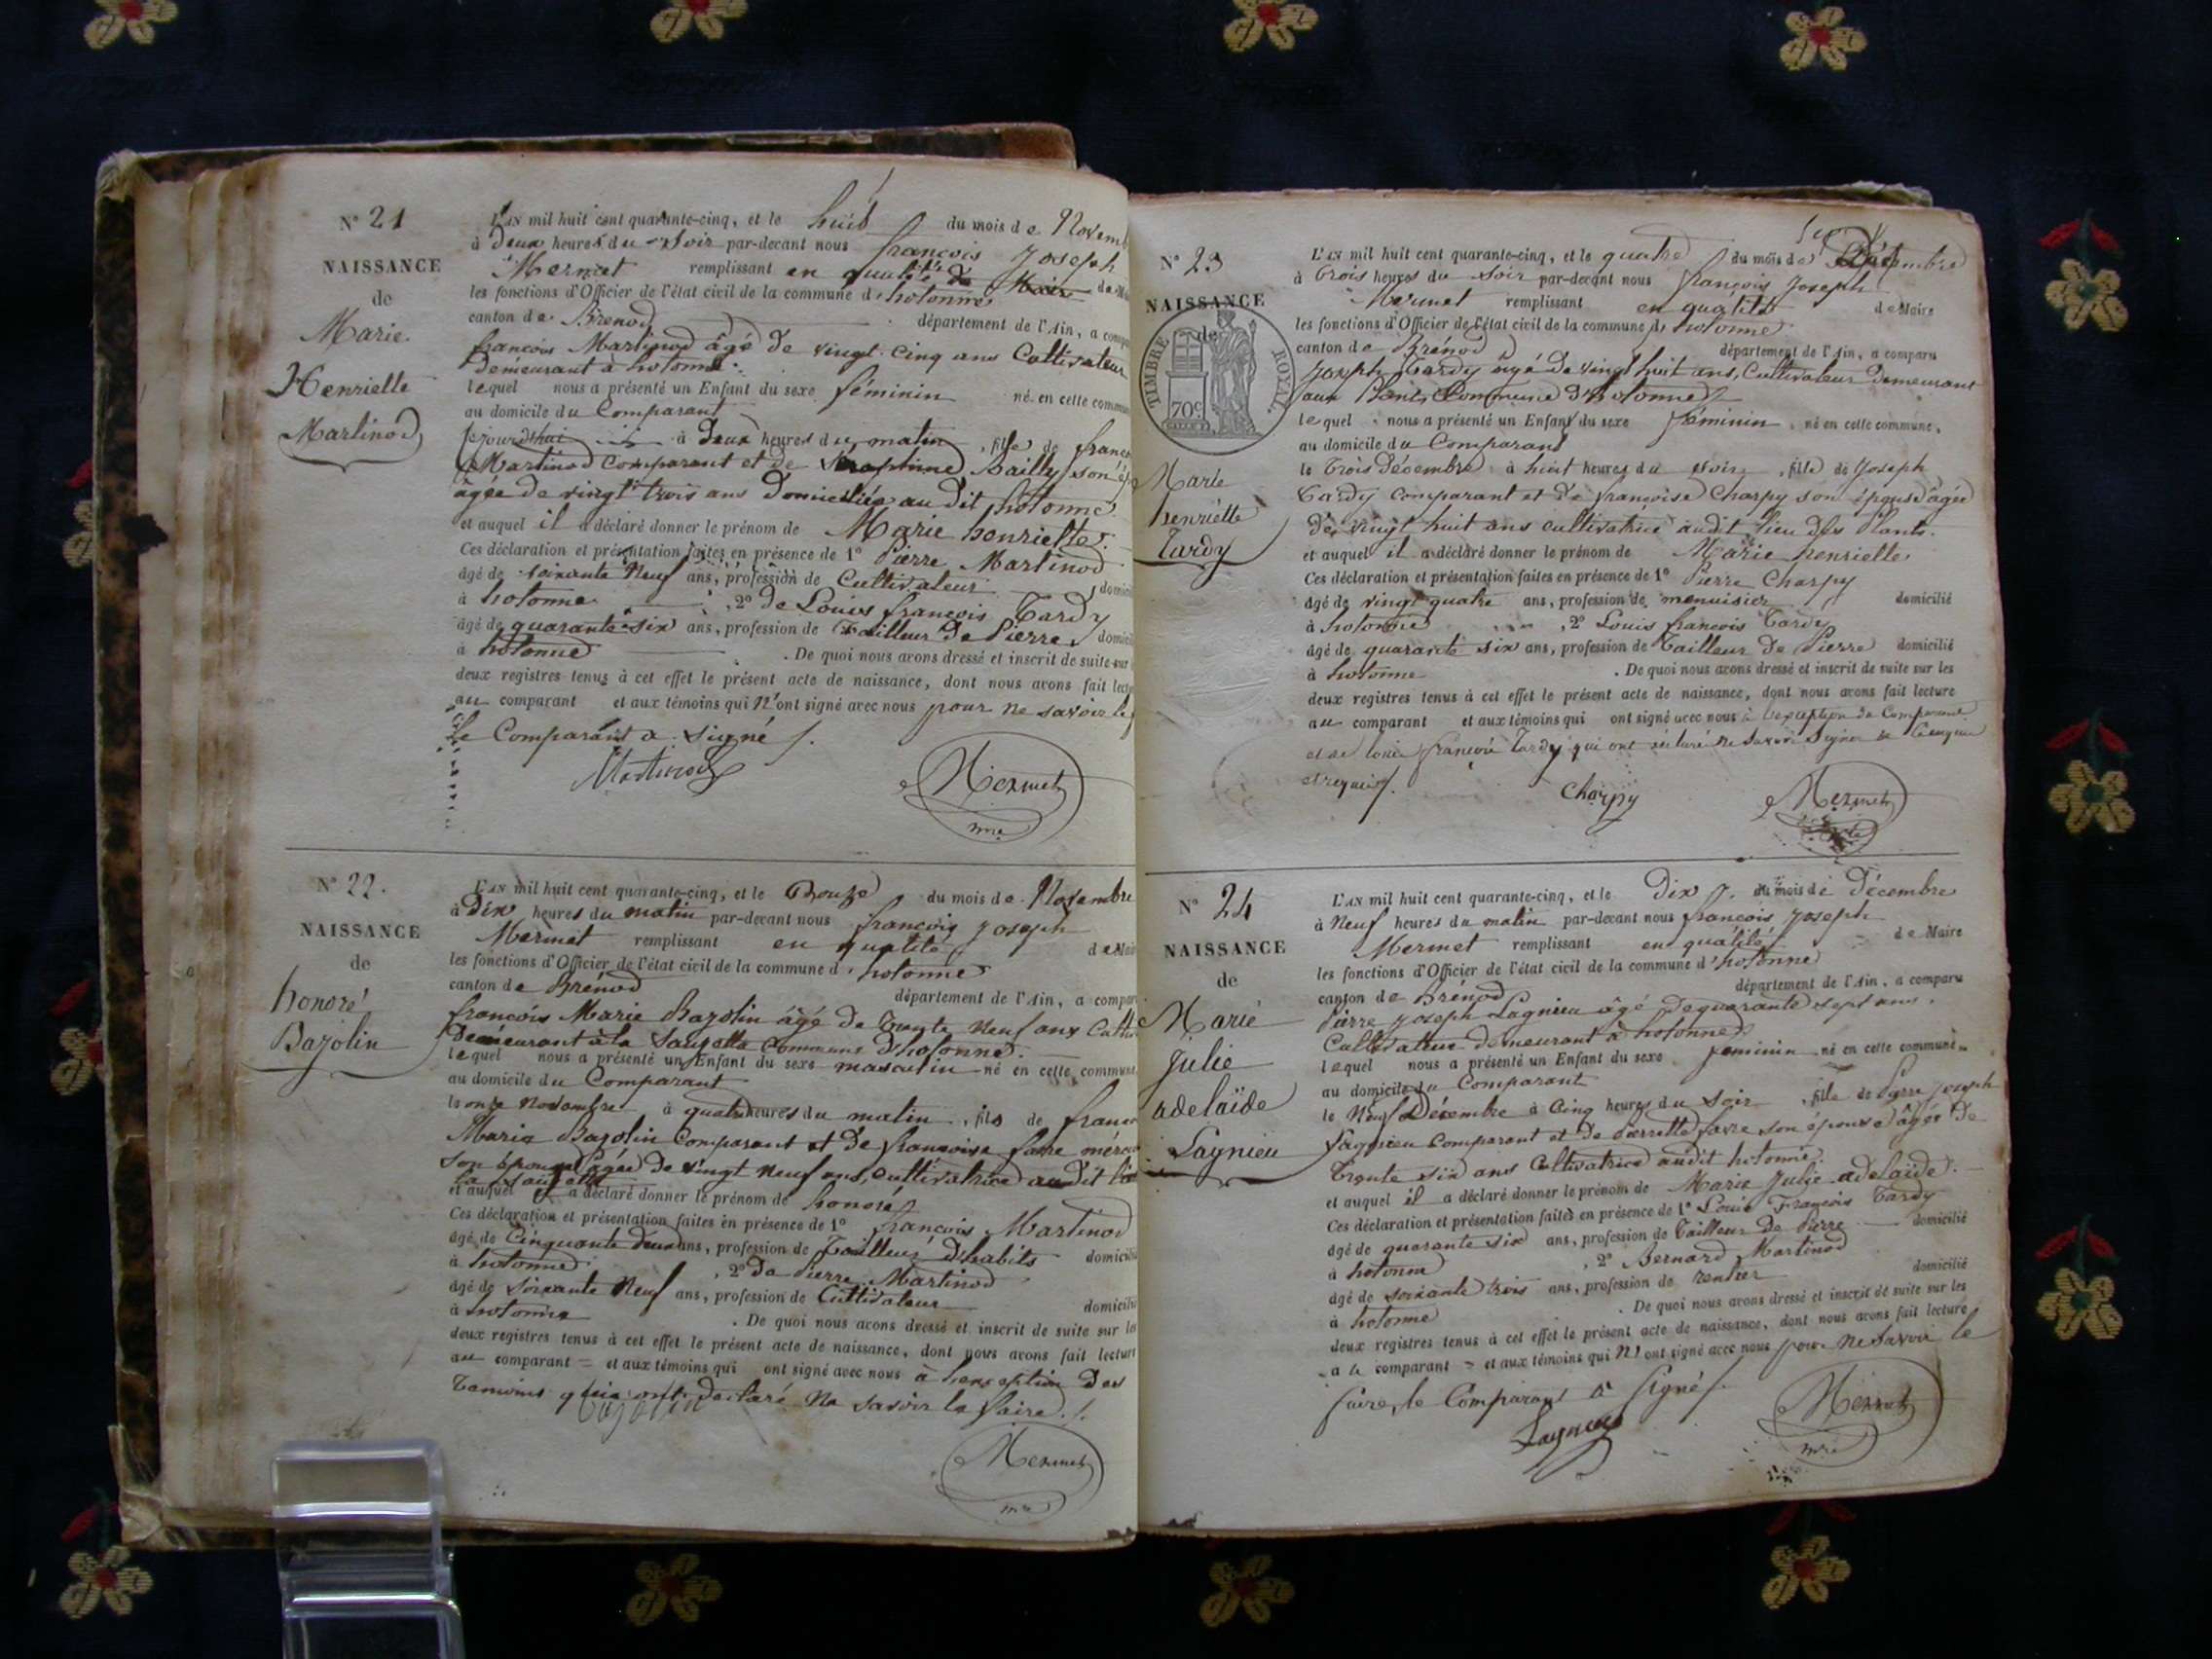 N° 21
NAISSANCE
de
Marie
Henriette
Martinod
L'AN mil huit cent quarante-cinq, et le huit du mois de Novemb
à Deux heures du soir par-devant nous françois Joseph
Mermet remplissant en qualité de Maire de
les fonctions d'Officier de l'état civil de la commune d'hotonne
canton de Brenod département de l'Ain, a compa
françois Martinod âgé de vingt cinq ans Cultivateur
Demeurant à hotonne
lequel nous a présenté un Enfant du sexe féminin né en cette commun
au domicile du Comparant
cejourd'hui à Deux heures du matin, fille de franç
Martinod Comparant et de Séraphine Bailly son ép
âgée de vingt trois ans Domiciliée au dit hotonne
et auquel il a déclaré donner le prénom de Marie henriette.
Ces déclaration et présentation faites en présence de 1° Pierre Martinod
âgé de soixante Neuf ans, profession de Cultivateur domici
à hotonne , 2° de Louis françois Tardy
âgé de quarante-six ans, profession de Tailleur De Pierre domicil
à hotonne . De quoi nous avons dressé et inscrit de suite sur
deux registres tenus à cet effet le présent acte de naissance, dont nous avons fait lectu
au comparant et aux témoins qui N'ont signé avec nous pour ne savoir le
Le Comparant a signé
Martinod
Mermet
mre
N° 22.
NAISSANCE
de
honoré
Bajolin
L'AN mil huit cent quarante-cinq, et le Douze du mois de Novembre
à Dix heures du matin par-devant nous françois Joseph
Mermet remplissant en qualité de Mair
les fonctions d'Officier de l'état civil de la commune d'hotonne
canton de Brénod département de l'Ain, a compar
françois Marie Bajolin âgé De Trente Neuf ans Cultiv
Demeurant à la Commune D'hotonne.
lequel nous a présenté un Enfant du sexe masculin né en cette commune
au domicile du Comparant
le onze Novembre à quatre heures du matin, fils de franço
Marie Bajolin Comparant et De françoise favre
son épouse âgée De vingt Neuf ans, cultivatrice audit lieu
et auquel il a déclaré donner le prénom de honoré
Ces déclaration et présentation faites en présence de 1° françois Martinod
âgé de Cinquante Deux ans, profession de Tailleur D'habits domicili
à hotonne , 2° De Pierre Martinod
âgé de soixante Neuf ans, profession de Cultivateur domicilié
à hotonne . De quoi nous avons dressé et inscrit de suite sur les
deux registres tenus à cet effet le présent acte de naissance, dont nous avons fait lecture
au comparant = et aux témoins qui ont signé avec nous à l'exception Des
Temoins qui ont Declaré Ne savoir le faire
Bajolin
Mermet
mre
N° 23
NAISSANCE
de
TIMBRE ROYAL
70c
Marie
henriette
Tardy
L'AN mil huit cent quarante-cinq, et le quatre du mois de Décembre
à Trois heures du soir par-devant nous françois Joseph
Mermet remplissant en qualité de Maire
les fonctions d'Officier de l'état civil de la commune d'hotonne
canton de Brénod département de l'Ain, a comparu
Joseph Tardy âgé de vingt huit ans, Cultivateur Demeurant
aux Plants Commune D'hotonne
lequel nous a présenté un Enfant du sexe féminin, né en cette commune,
au domicile du Comparant
le Trois décembre à huit heures du soir, fille de Joseph
Tardy comparant et De françoise Charpy son épouse âgée
De vingt huit ans cultivatrice audit lieu Des Plants.
et auquel il a déclaré donner le prénom de Marie henriette
Ces déclaration et présentation faites en présence de 1° Pierre Charpy
âgé de vingt quatre ans, profession de menuisier domicilié
à hotonne , 2° Louis françois Tardy
âgé de quarante six ans, profession de Tailleur De Pierre domicilié
à hotonne . De quoi nous avons dressé et inscrit de suite sur les
deux registres tenus à cet effet le présent acte de naissance, dont nous avons fait lecture
au comparant et aux témoins qui ont signé avec nous à l'exception du Comparant
et de Louis françois Tardy qui ont déclaré ne savoir signer de ce enquis
et requis
Charpy
Mermet
N° 24
NAISSANCE
de
Marie
Julie
adelaïde
Lagnieu
L'AN mil huit cent quarante-cinq, et le Dix du mois de Décembre
à Neuf heures du matin par-devant nous françois Joseph
Mermet remplissant en qualité de Maire
les fonctions d'Officier de l'état civil de la commune d'hotonne
canton de Brénod département de l'Ain, a comparu
Pierre Joseph Lagnieu âgé De quarante sept ans,
Cultivateur demeurant à hotonne
lequel nous a présenté un Enfant du sexe féminin né en cette commune
au domicile du Comparant
le Neuf Décembre à Cinq heures du soir, fille de Pierre Joseph
Lagnieu Comparant et De Pierrette favre son épouse âgée De
Trente six ans Cultivatrice audit hotonne.
et auquel il a déclaré donner le prénom de Marie Julie adelaïde.
Ces déclaration et présentation faites en présence de 1° Louis François Tardy
âgé de quarante six ans, profession de Tailleur De Pierre domicilié
à hotonne , 2° Bernard Martinod
âgé de soixante trois ans, profession de rentier domicilié
à hotonne . De quoi nous avons dressé et inscrit de suite sur les
deux registres tenus à cet effet le présent acte de naissance, dont nous avons fait lecture
au comparant = et aux témoins qui N'ont signé avec nous pour ne savoir le
faire, le Comparant a signé
Lagnieu
Mermet
mre